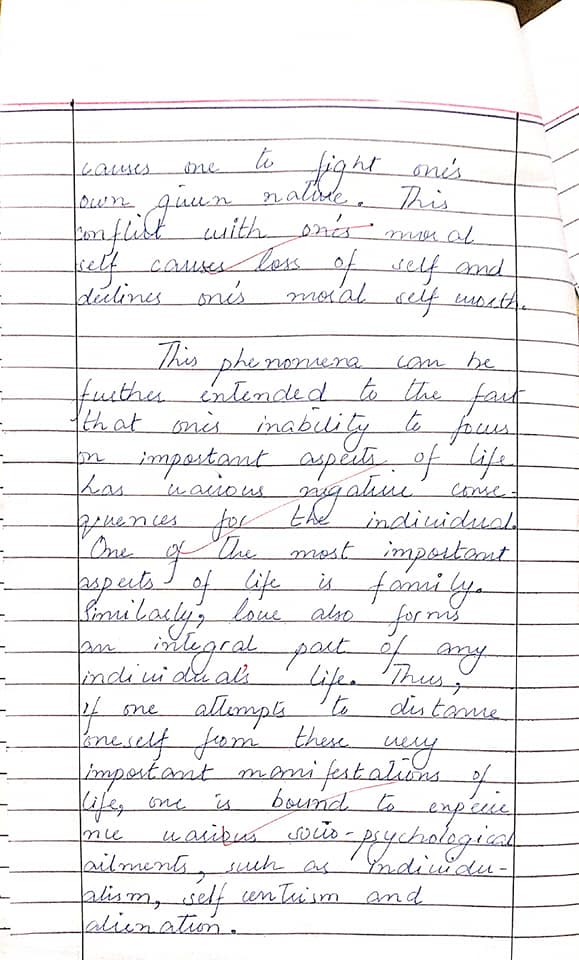 causes one to fight one's
own given nature. This
conflict with one's moral
self causes loss of self and
declines one's moral self worth.
This phenomena can be
further extended to the fact
that one's inability to focus
on important aspects of life
has various negative conse-
quences for the individual.
One of the most important
aspects of life is family.
Similarly, love also forms
an integral part of any
individual's life. Thus,
if one attempts to distance
oneself from these very
important manifestations of
life, one is bound to experie
nce various socio-psychological
ailments, such as individu-
alism, self centrism and
alienation.